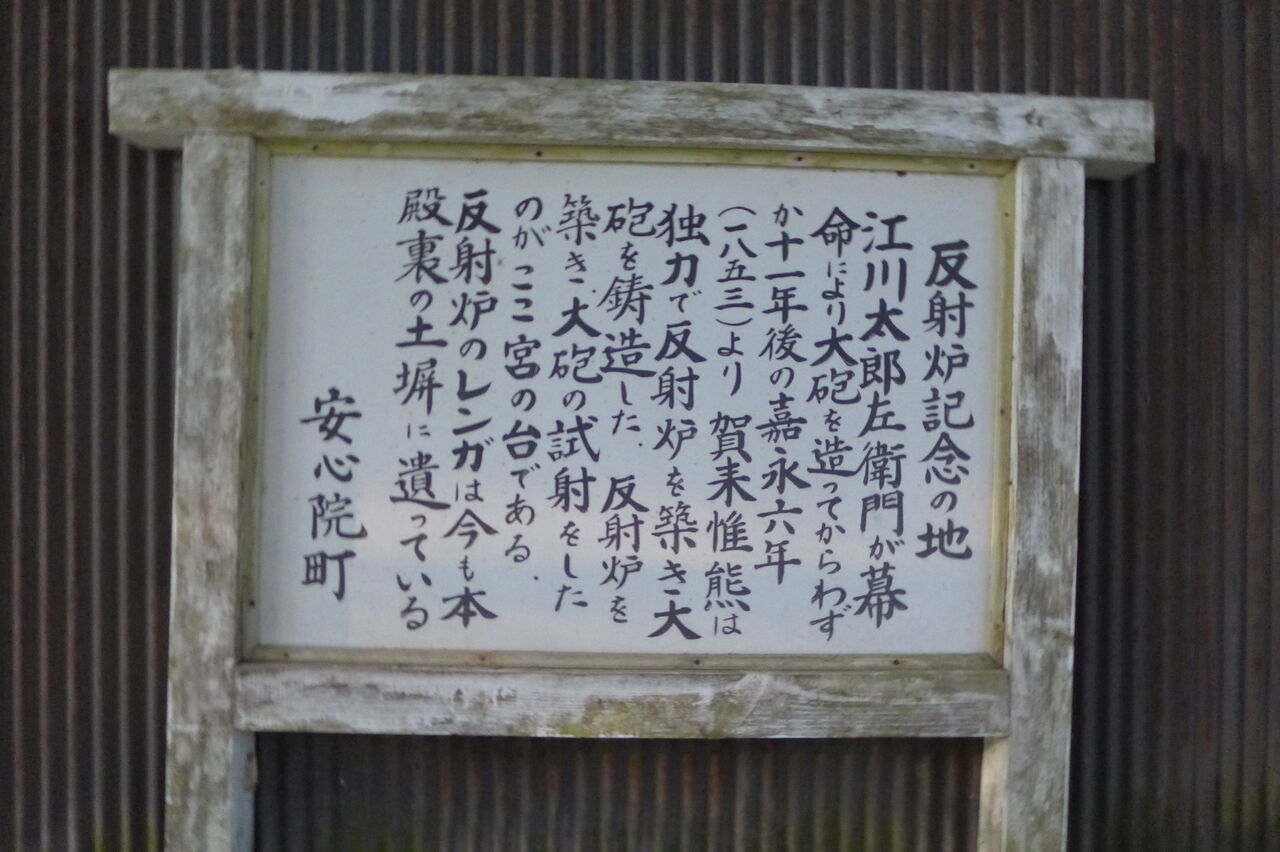 反射炉記念の地
江川太郎左衛門が幕
命により大砲を造ってからわず
か十一年後の嘉永六年
(一八五三)より 賀来惟熊は
独力で反射炉を築き大
砲を鋳造した. 反射炉を
築き大砲の試射をした
のがここ宮の台である.
反射炉のレンガは今も本
殿裏の土塀に遺っている
安心院町